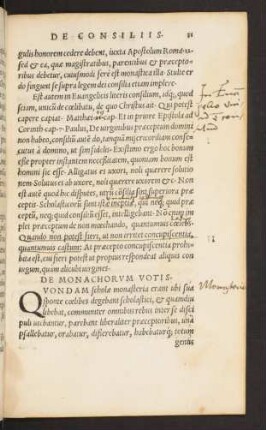 DE CONSILIIS. 81
gulis honorem cedere debent, iuxta Apostolum Roma-
& ea, quæ magistratibus, parentibus & præcepto-
ribus debetur, cuiusmodi fere est monastica illa. Stulte er
go fingunt se supra legem dei consilia etiam implere.
Est autem in Euangelicis literis consilium, quod
sciam, unicũ de cælibatu, de quo Christus ait Qui potest
capere capiat. Matthæi 19 cap. Et in priore Epistola ad
Corinth. cap. 7 Paulus, De uirginibus præceptum domini
non habeo, consiliũ autẽ do, tanquã misericordiam conse
cutus à domino, ut sim fidelis. Existimo ergo hoc bonum
esse propter instantem necessitatem, quoniam bonum est
homini sic esse. Alligatus es uxori, noli quærere solutio
nem. Solutus es ab uxore, noli quærere uxorem &c. Non
est autẽ quod hic disputes, utrũ cõsilia sint superiora præ
ceptis. Scholasticorũ sunt istæ ineptiæ, qui neq; quid præ
ceptũ, neq; quid consiliũ esset, intelligebant.
ples præceptum de non nuptando, quantumuis
Quando non potest fieri, ut non erret concupiscentia,
quantumuis castum: At præcepto concupiscentia prohi
bita est, cui fieri potest ut propius respondeat aliquis con
iugum, quàm alicubi uirgines.
DE MONACHORVM VOTIS.
QVONDAM schola monasteria erant ubi sua
sponte cælibes degebant scholastici, & quamdiu
libebat, communiter omnibus rebus inter se disti
pulis utebantur, parebant liberaliter præceptoribus, unà
psallebatur, orabatur, disserebatur, habebaturq; totum
genus
Monasteria